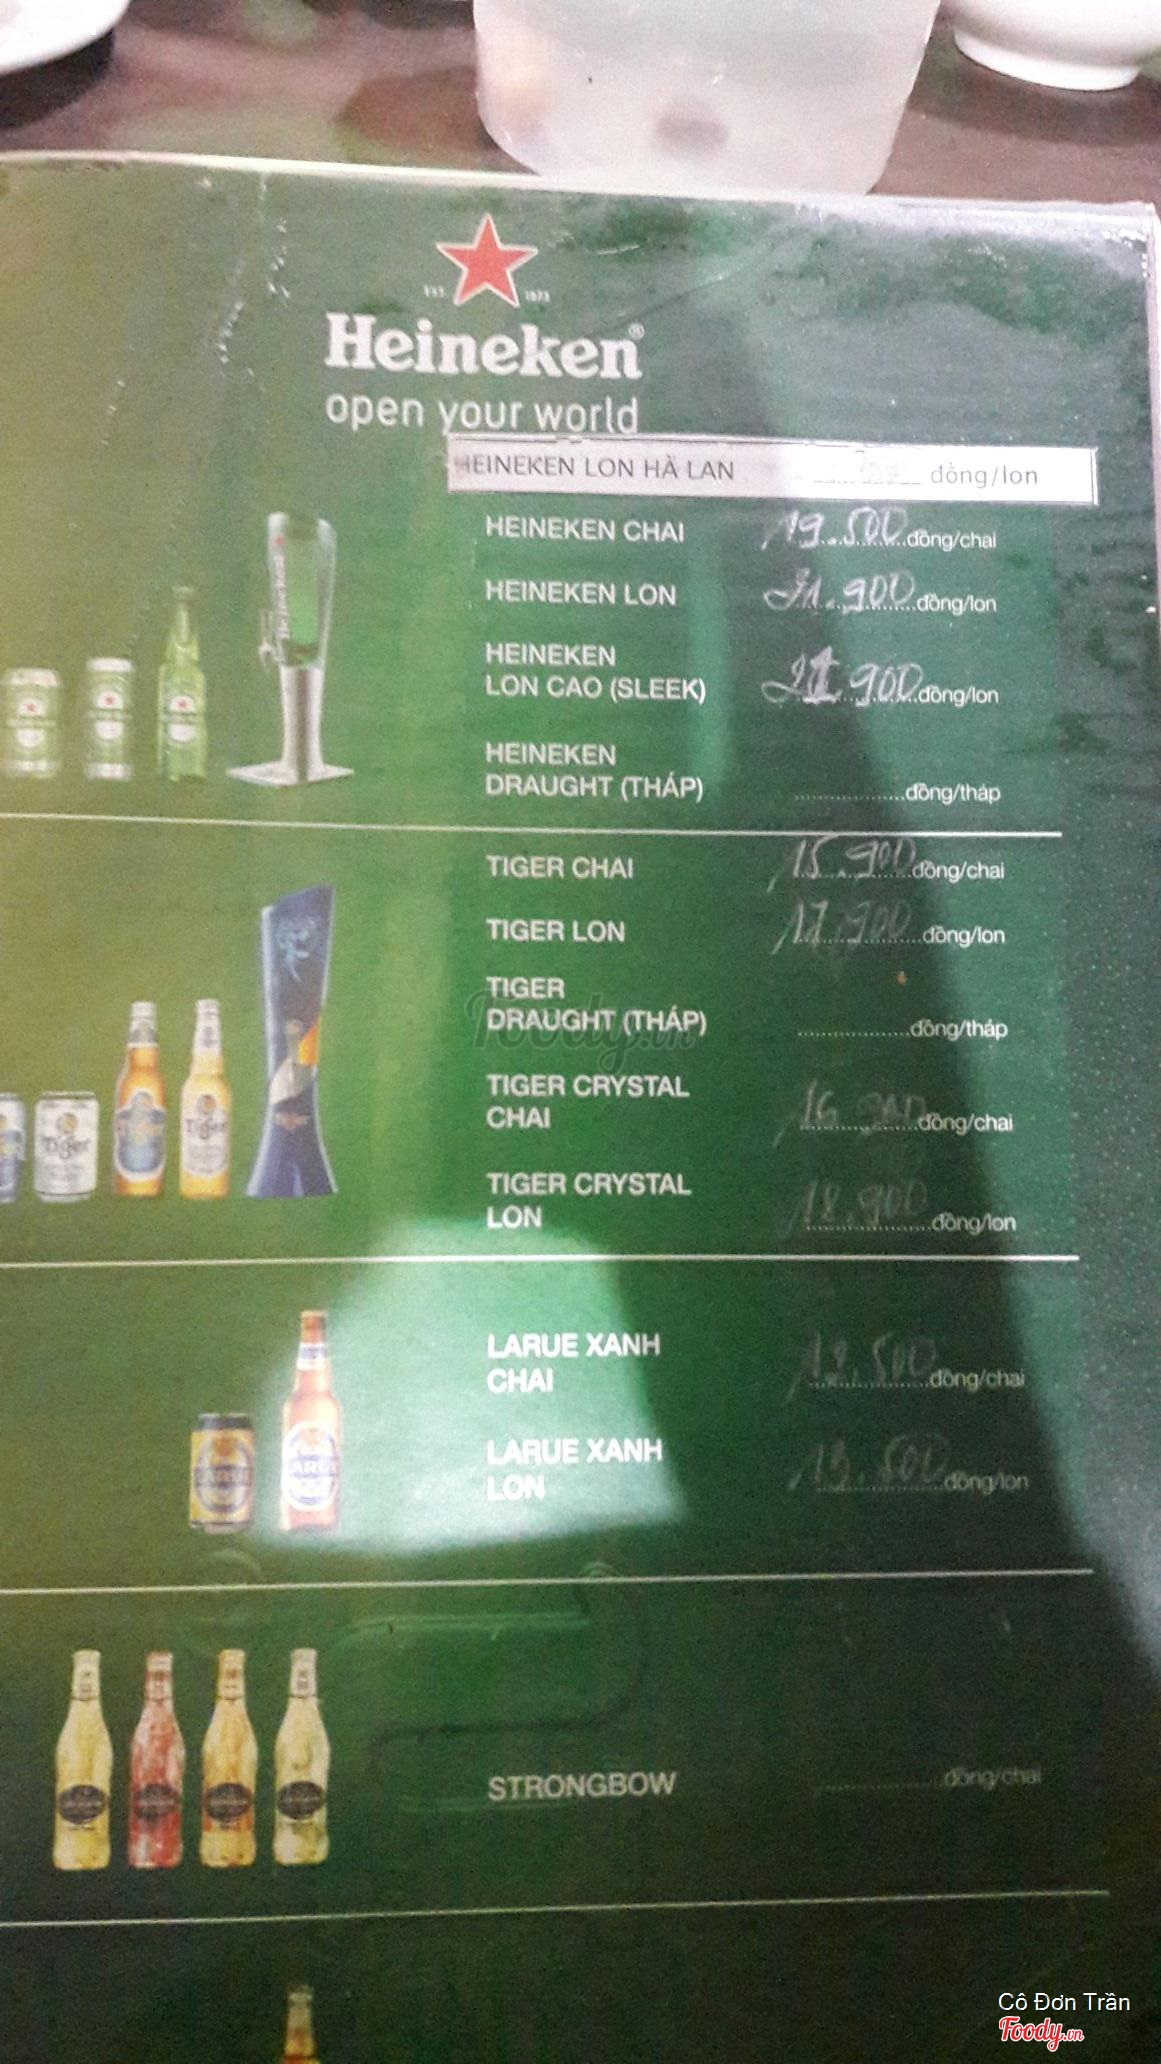 EST. 1873
Heineken®
open your world
HEINEKEN LON HÀ LAN đồng/lon
HEINEKEN CHAI 19.500 đồng/chai
HEINEKEN LON 21.900 đồng/lon
HEINEKEN
LON CAO (SLEEK) 21.900 đồng/lon
HEINEKEN
DRAUGHT (THÁP) ....................đồng/tháp
TIGER CHAI 15.900 đồng/chai
TIGER LON 17.900 đồng/lon
TIGER
DRAUGHT (THÁP) ....................đồng/tháp
TIGER CRYSTAL
CHAI 16.900 đồng/chai
TIGER CRYSTAL
LON 18.900 đồng/lon
LARUE XANH
CHAI đồng/chai
LARUE XANH
LON 13.500 đồng/lon
STRONGBOW ....................đồng/chai
Foody.vn
Cô Đơn Trần
Foody.vn